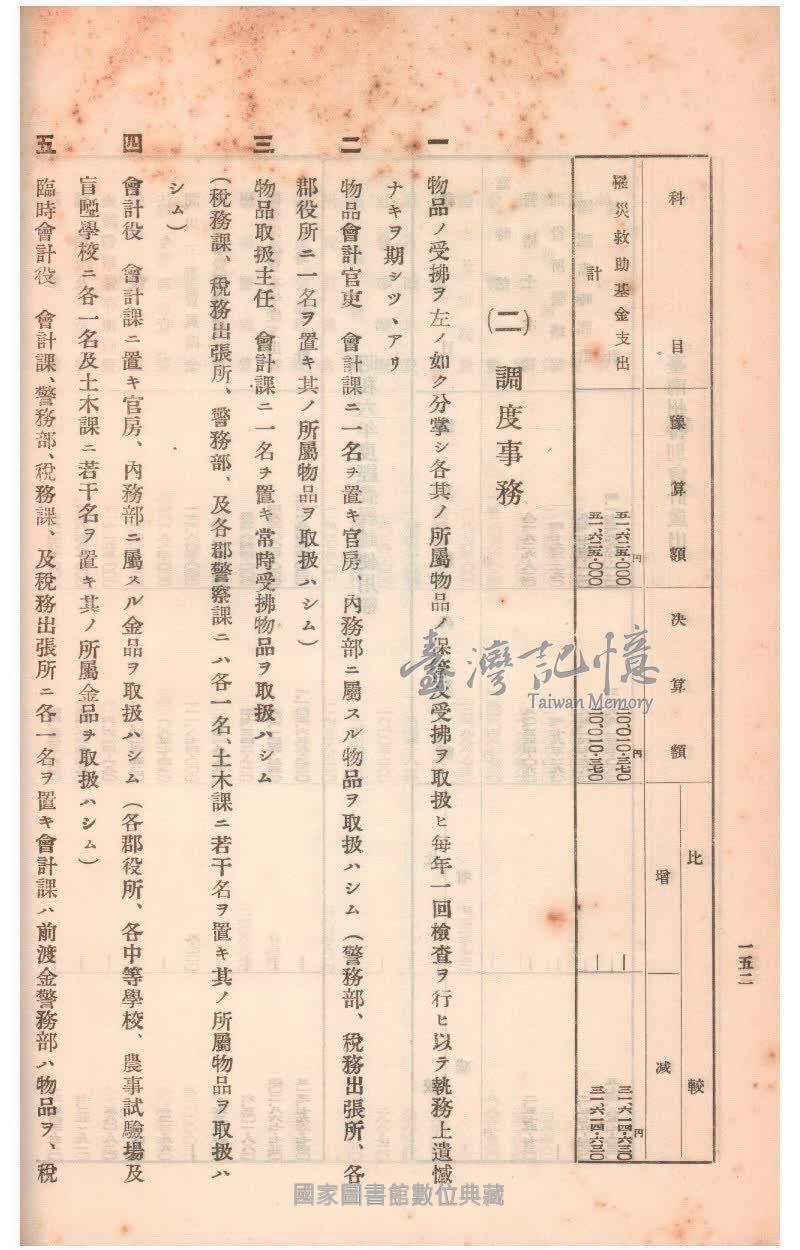 一五二
科目
豫算額
決算額
比較
增
減
罹災救助基金支出
五一、六二五・〇〇〇円
二〇、〇一〇・三七〇円
一
三一、六一四・六三〇円
計
五一、六二五・〇〇〇
二〇、〇一〇・三七〇
一
三一、六一四・六三〇
(二) 調度事務
一 物品ノ受拂ヲ左ノ如ク分掌シ各其ノ所屬物品ノ保管及受拂ヲ取扱ヒ每年一回檢査ヲ行ヒ以テ執務上遺憾
ナキヲ期シツヽアリ
二 物品會計官吏 會計課ニ一名ヲ置キ官房、內務部ニ屬スル物品ヲ取扱ハシム(警務部、稅務出張所、各
郡役所ニ一名ヲ置キ其ノ所屬物品ヲ取扱ハシム)
三 物品取扱主任 會計課ニ一名ヲ置キ常時受拂物品ヲ取扱ハシム
(稅務課、稅務出張所、警務部、及各郡警察課ニハ各一名、土木課ニ若干名ヲ置キ其ノ所屬物品ヲ取扱ハ
シム)
四 會計役 會計課ニ置キ官房、內務部ニ屬スル金品ヲ取扱ハシム(各郡役所、各中等學校、農事試驗場及
盲啞學校ニ各一名及土木課ニ若干名ヲ置キ其ノ所屬金品ヲ取扱ハシム)
五 臨時會計役 會計課、警務部、稅務課、及稅務出張所ニ各一名ヲ置キ會計課ハ前渡金警務部ハ物品ヲ、稅
臺灣記憶
Taiwan Memory
國家圖書館數位典藏